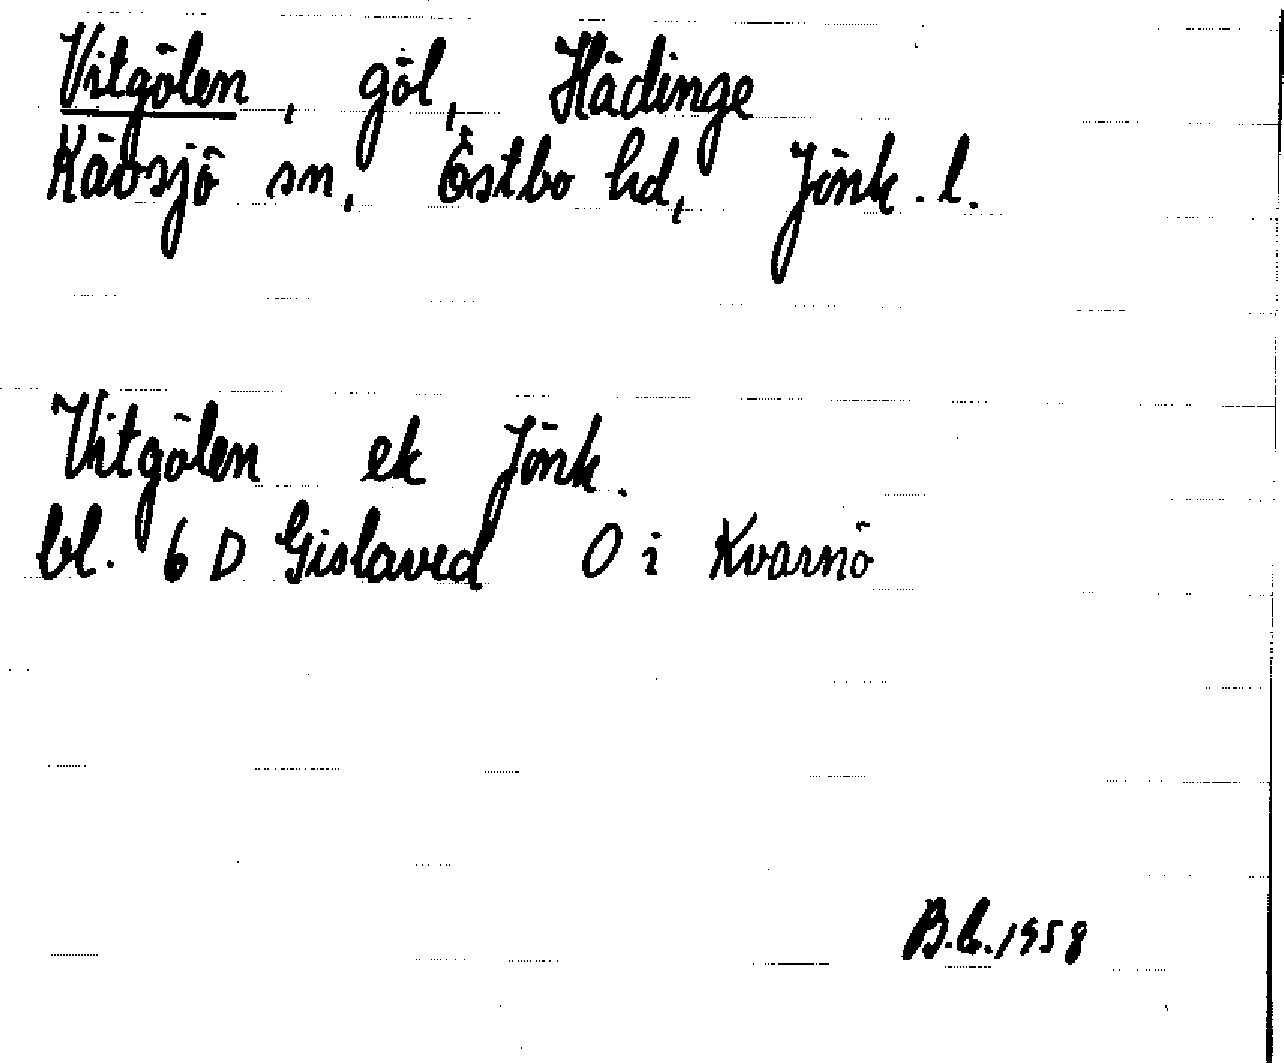 Vitgölen, göl, Hädinge
Kävsjö sn, Östbo hd, Jönk. l.
Vitgölen ek Jönk.
bl. 6 D Gislaved O i Kvarnö
B.E. 1958